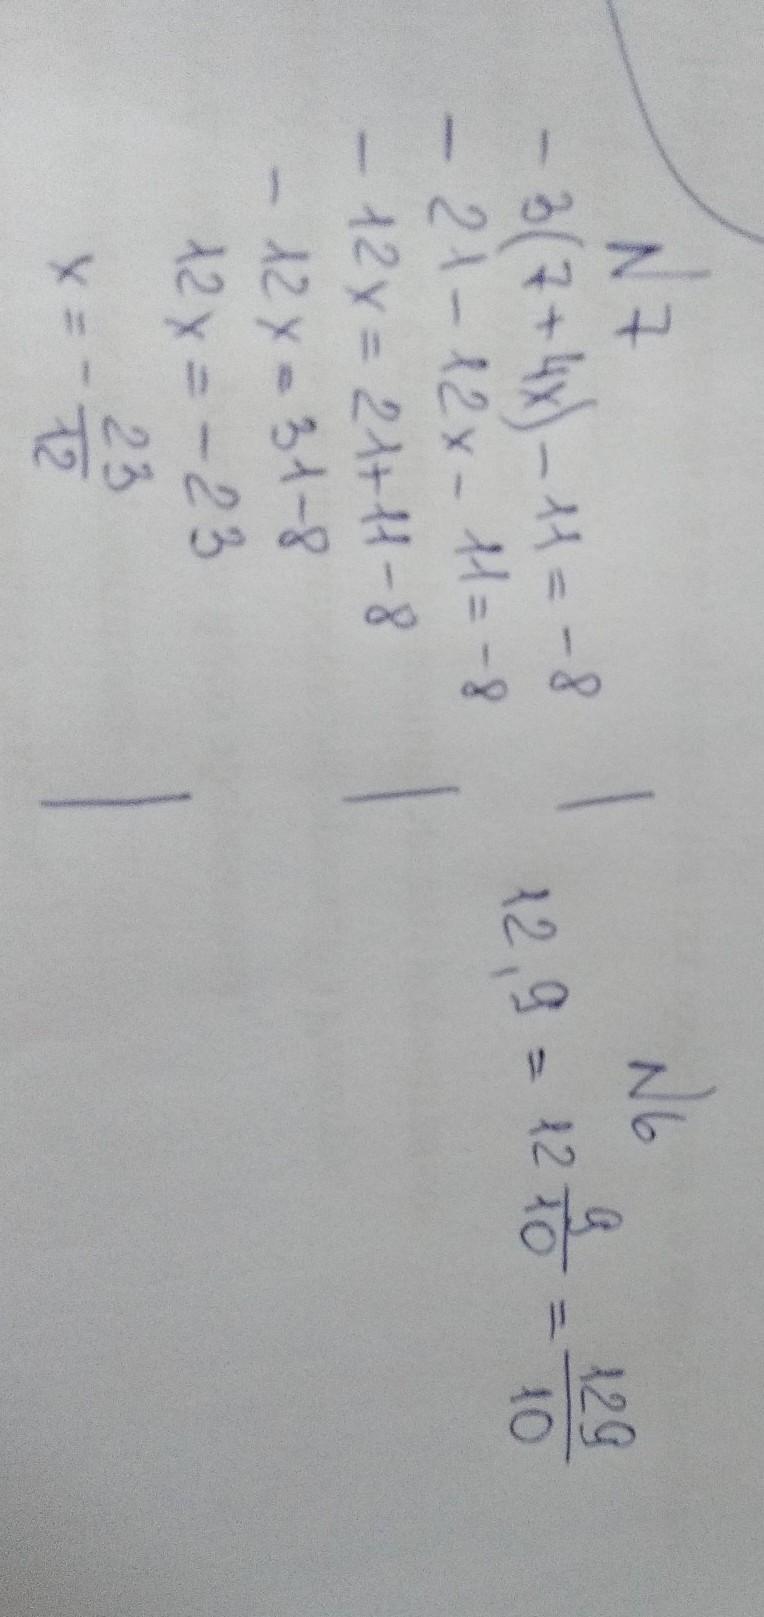 N7
- 3(7 + 4x) - 11 = - 8
- 21 - 12x - 11 = - 8
- 12x = 21 + 11 - 8
- 12x = 31 - 8
12x = - 23
x = - 23/12
N6
12,9 = 12 9/10 = 129/10